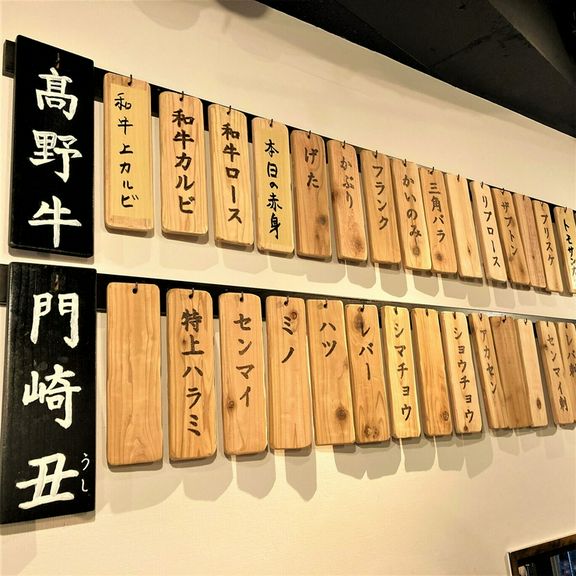 髙野牛
和牛上カルビ
和牛カルビ
和牛ロース
本日の赤身
げた
かぶり
フランク
かいのみ
三角バラ
リブロース
ザブトン
ブリスケ
トモサンカク
門崎丑
うし
特上ハラミ
センマイ
ミノ
ハツ
レバー
シマチョウ
ショウチョウ
アカセン
センマイ刺